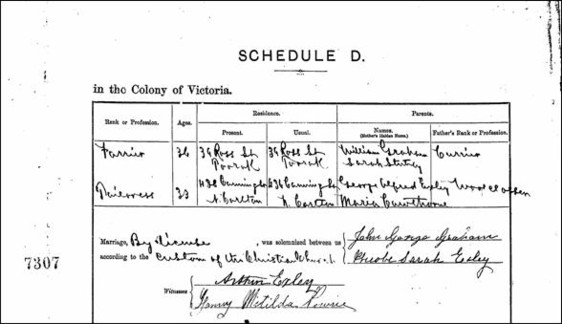 SCHEDULE D.
in the Colony of Victoria.
Rank or Profession. Ages. Residence. Parents.
Present. Usual. Names. (Mother's Maiden Name.) Father's Rank or Profession.
36 Ross St 36 Ross St William Graham
Toorak Toorak Sarah Currier
Tailoress 33 Canning St Canning St George Alfred Exley
N. Carlton N. Carlton Maria
Marriage, By License, was solemnized between us John George Graham
according to the Custom of the Christian Church Phoebe Sarah Exley
7307
Witnesses Arthur Exley
Matilda